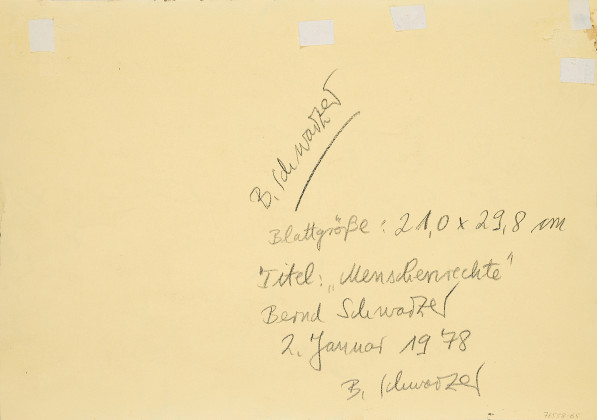 B. Schwarzer
Blattgröße: 21,0 x 29,8 cm
Titel: „Menschenrechte“
Bernd Schwarzer
2. Januar 1978
B. Schwarzer